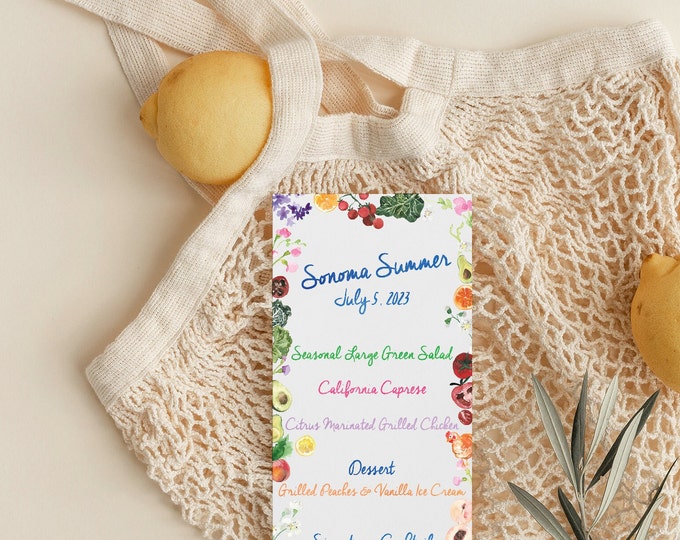 Sonoma Summer
July 5, 2023
Seasonal Large Green Salad
California Caprese
Citrus Marinated Grilled Chicken
Dessert
Grilled Peaches & Vanilla Ice Cream